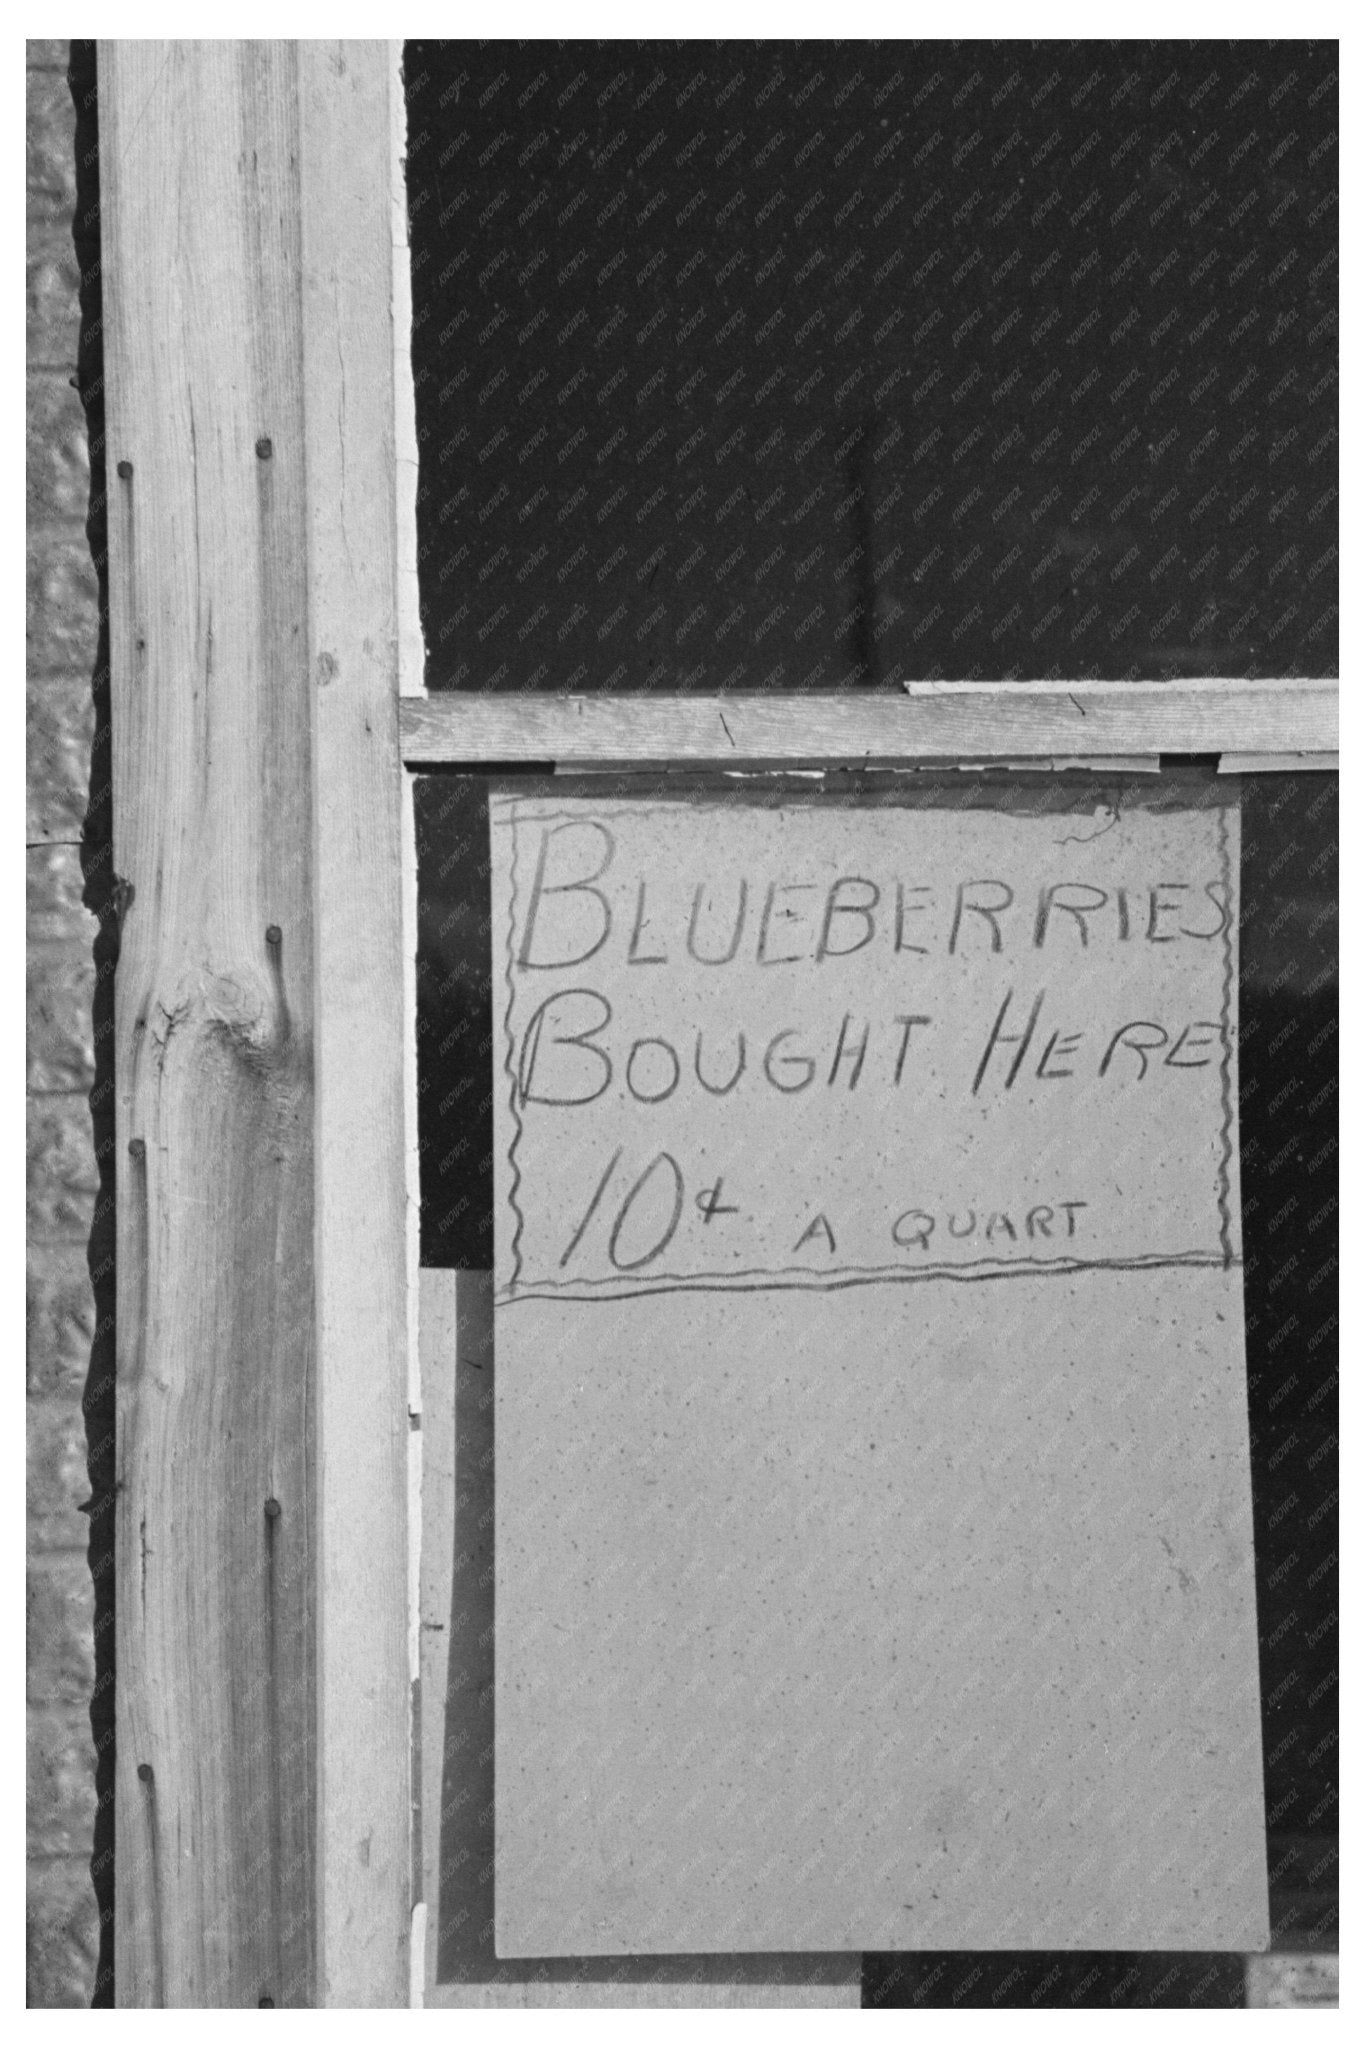 BLUEBERRIES
BOUGHT HERE
10¢ A QUART
KNOWOL